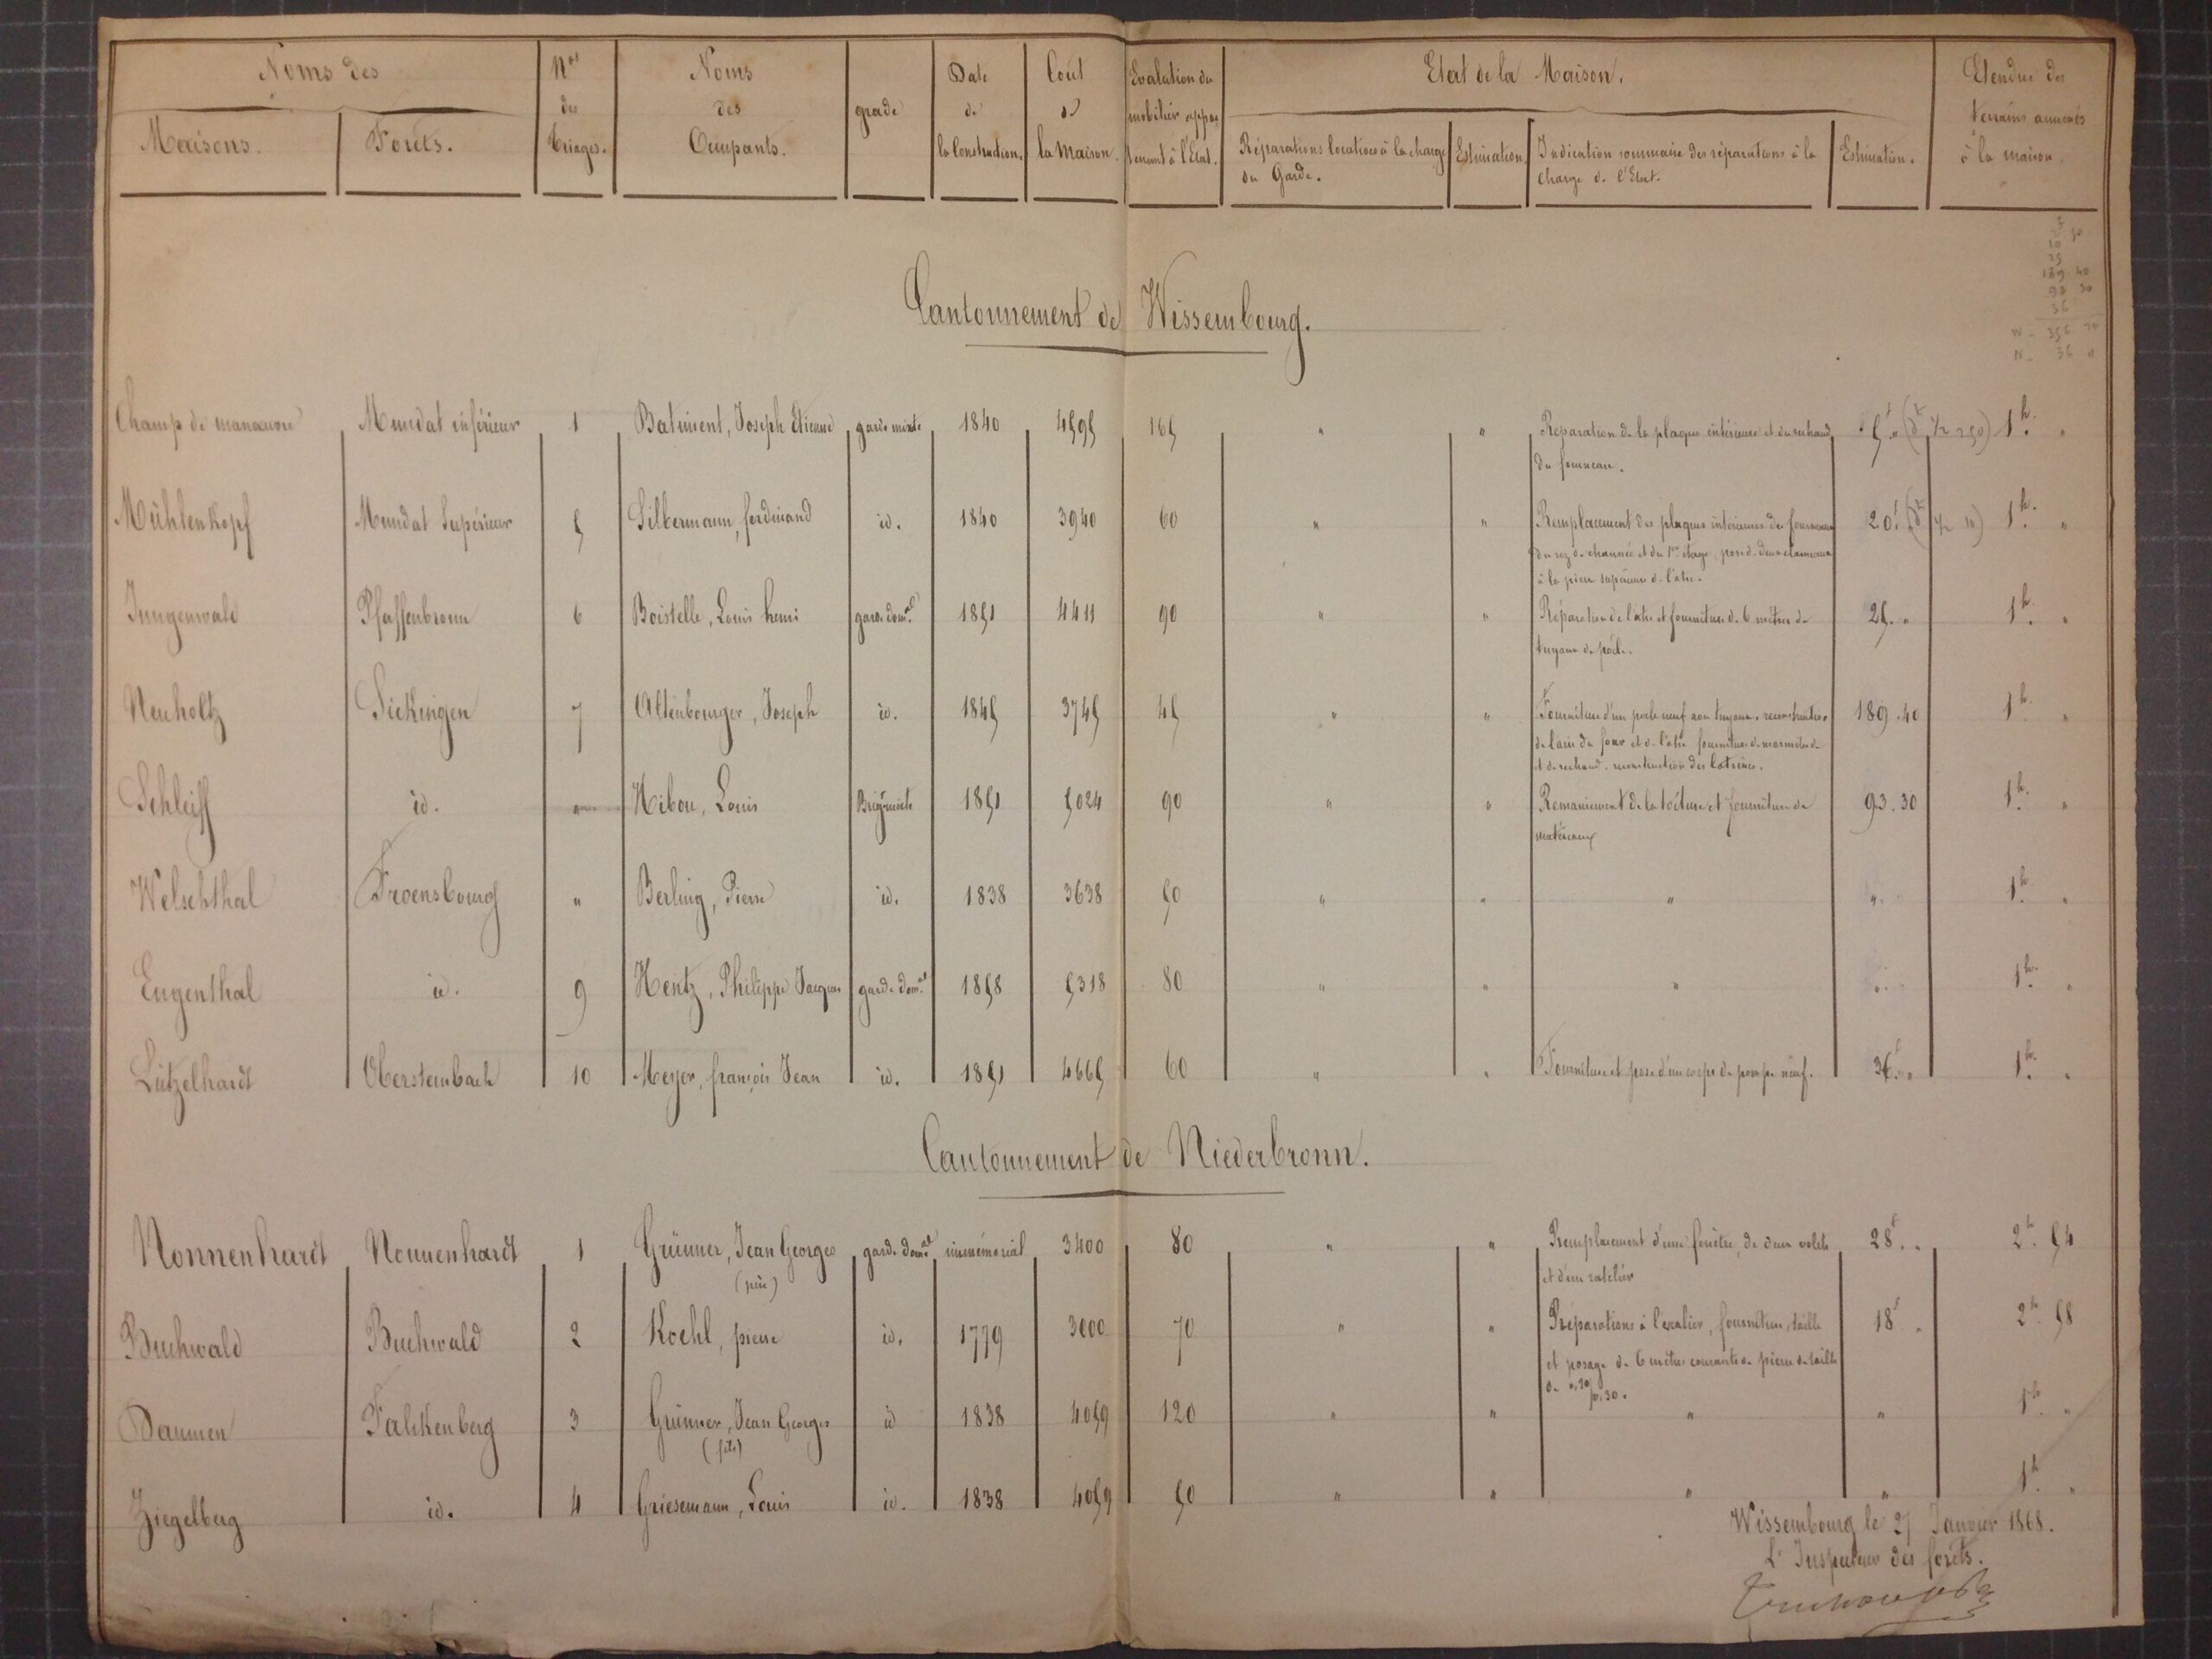 Noms des
Maisons.
Forêts.
Nos
des
Triages.
Noms
des
Occupants.
grade
Date
de
la Construction.
Cout
de
la Maison.
Evalution du
mobilier appar
tenant à l'Etat.
Etat de la Maison.
Réparations locatives à la charge
du Garde.
Estimation.
Indication sommaire des réparations à la
charge de l'Etat.
Estimation.
Etendue des
terrains annexés
à la maison.
Cantonnement de Wissembourg.
Champ de manœuvre Mundat inférieur 1 Batiment, Joseph Etienne garde mixte 1840 4595 165 " " Réparation de la plaque intérieure et du réchaud 5 " 1h. "
du fourneau.
Mühlenkopf Mundat Supérieur 5 Silbermann, ferdinand id. 1840 3940 60 " " Remplacement des plaques intérieures des fourneaux 20f 1h. "
du rez de chaussée et du 1er étage, pose de deux
à la pierre supérieure de l'atre.
Jungenwald Pfaffenbronn 6 Boistelle, Louis henri garde domal 1851 4411 90 " " Réparation de l'atre et fourniture de 6 mètres de 25. " 1h. "
tuyaux de poële.
Neuholtz Sickingen 7 Altenbourger, Joseph id. 1845 3745 45 " " Fourniture d'un poele neuf avec tuyaux, reconstruction 189.40 1h. "
de l'aire du four et de l'atre fourniture de marmite
et de réchaud. reconstruction des latrines.
Schleiff id. " Hibou, Louis Brigr mixte 1851 5024 90 " " Remaniement de la toiture et fourniture de 93.30 1h. "
matériaux
Welschthal Froensbourg " Berling, Pierre id. 1838 3638 50 " " " " 1h. "
Eugenthal id. 9 Hentz, Philippe Jacques garde domal 1858 5318 80 " " " " 1h. "
Lützelhardt Obersteinbach 10 Meyer, françois Jean id. 1851 4665 60 " " Fourniture et pose d'un corps de pompe neuf. 36f " 1h. "
Cantonnement de Niederbronn.
Nonnenhardt Nonnenhardt 1 Grünner, Jean Georges garde domal immémorial 3400 80 " " Remplacement d'une fenêtre, de deux volets 28f " 2h. 54
(père) et d'un ratelier
Buchwald Buchwald 2 Koehl, pierre id. 1779 3000 70 " " Réparations à l'escalier, fourniture, taille 18f " 2h. 58
et posage de 6 mètres courants de pierre de taille
de 0,20/0,30.
Daumen Falkenberg 3 Grünner, Jean Georges id 1838 4059 120 " " " " 1h. "
(fils)
Ziegelberg id. 4 Griesemann, Louis id. 1838 4059 50 " " " " 1h. "
Wissembourg le 27 Janvier 1868.
L'Inspecteur des forêts.